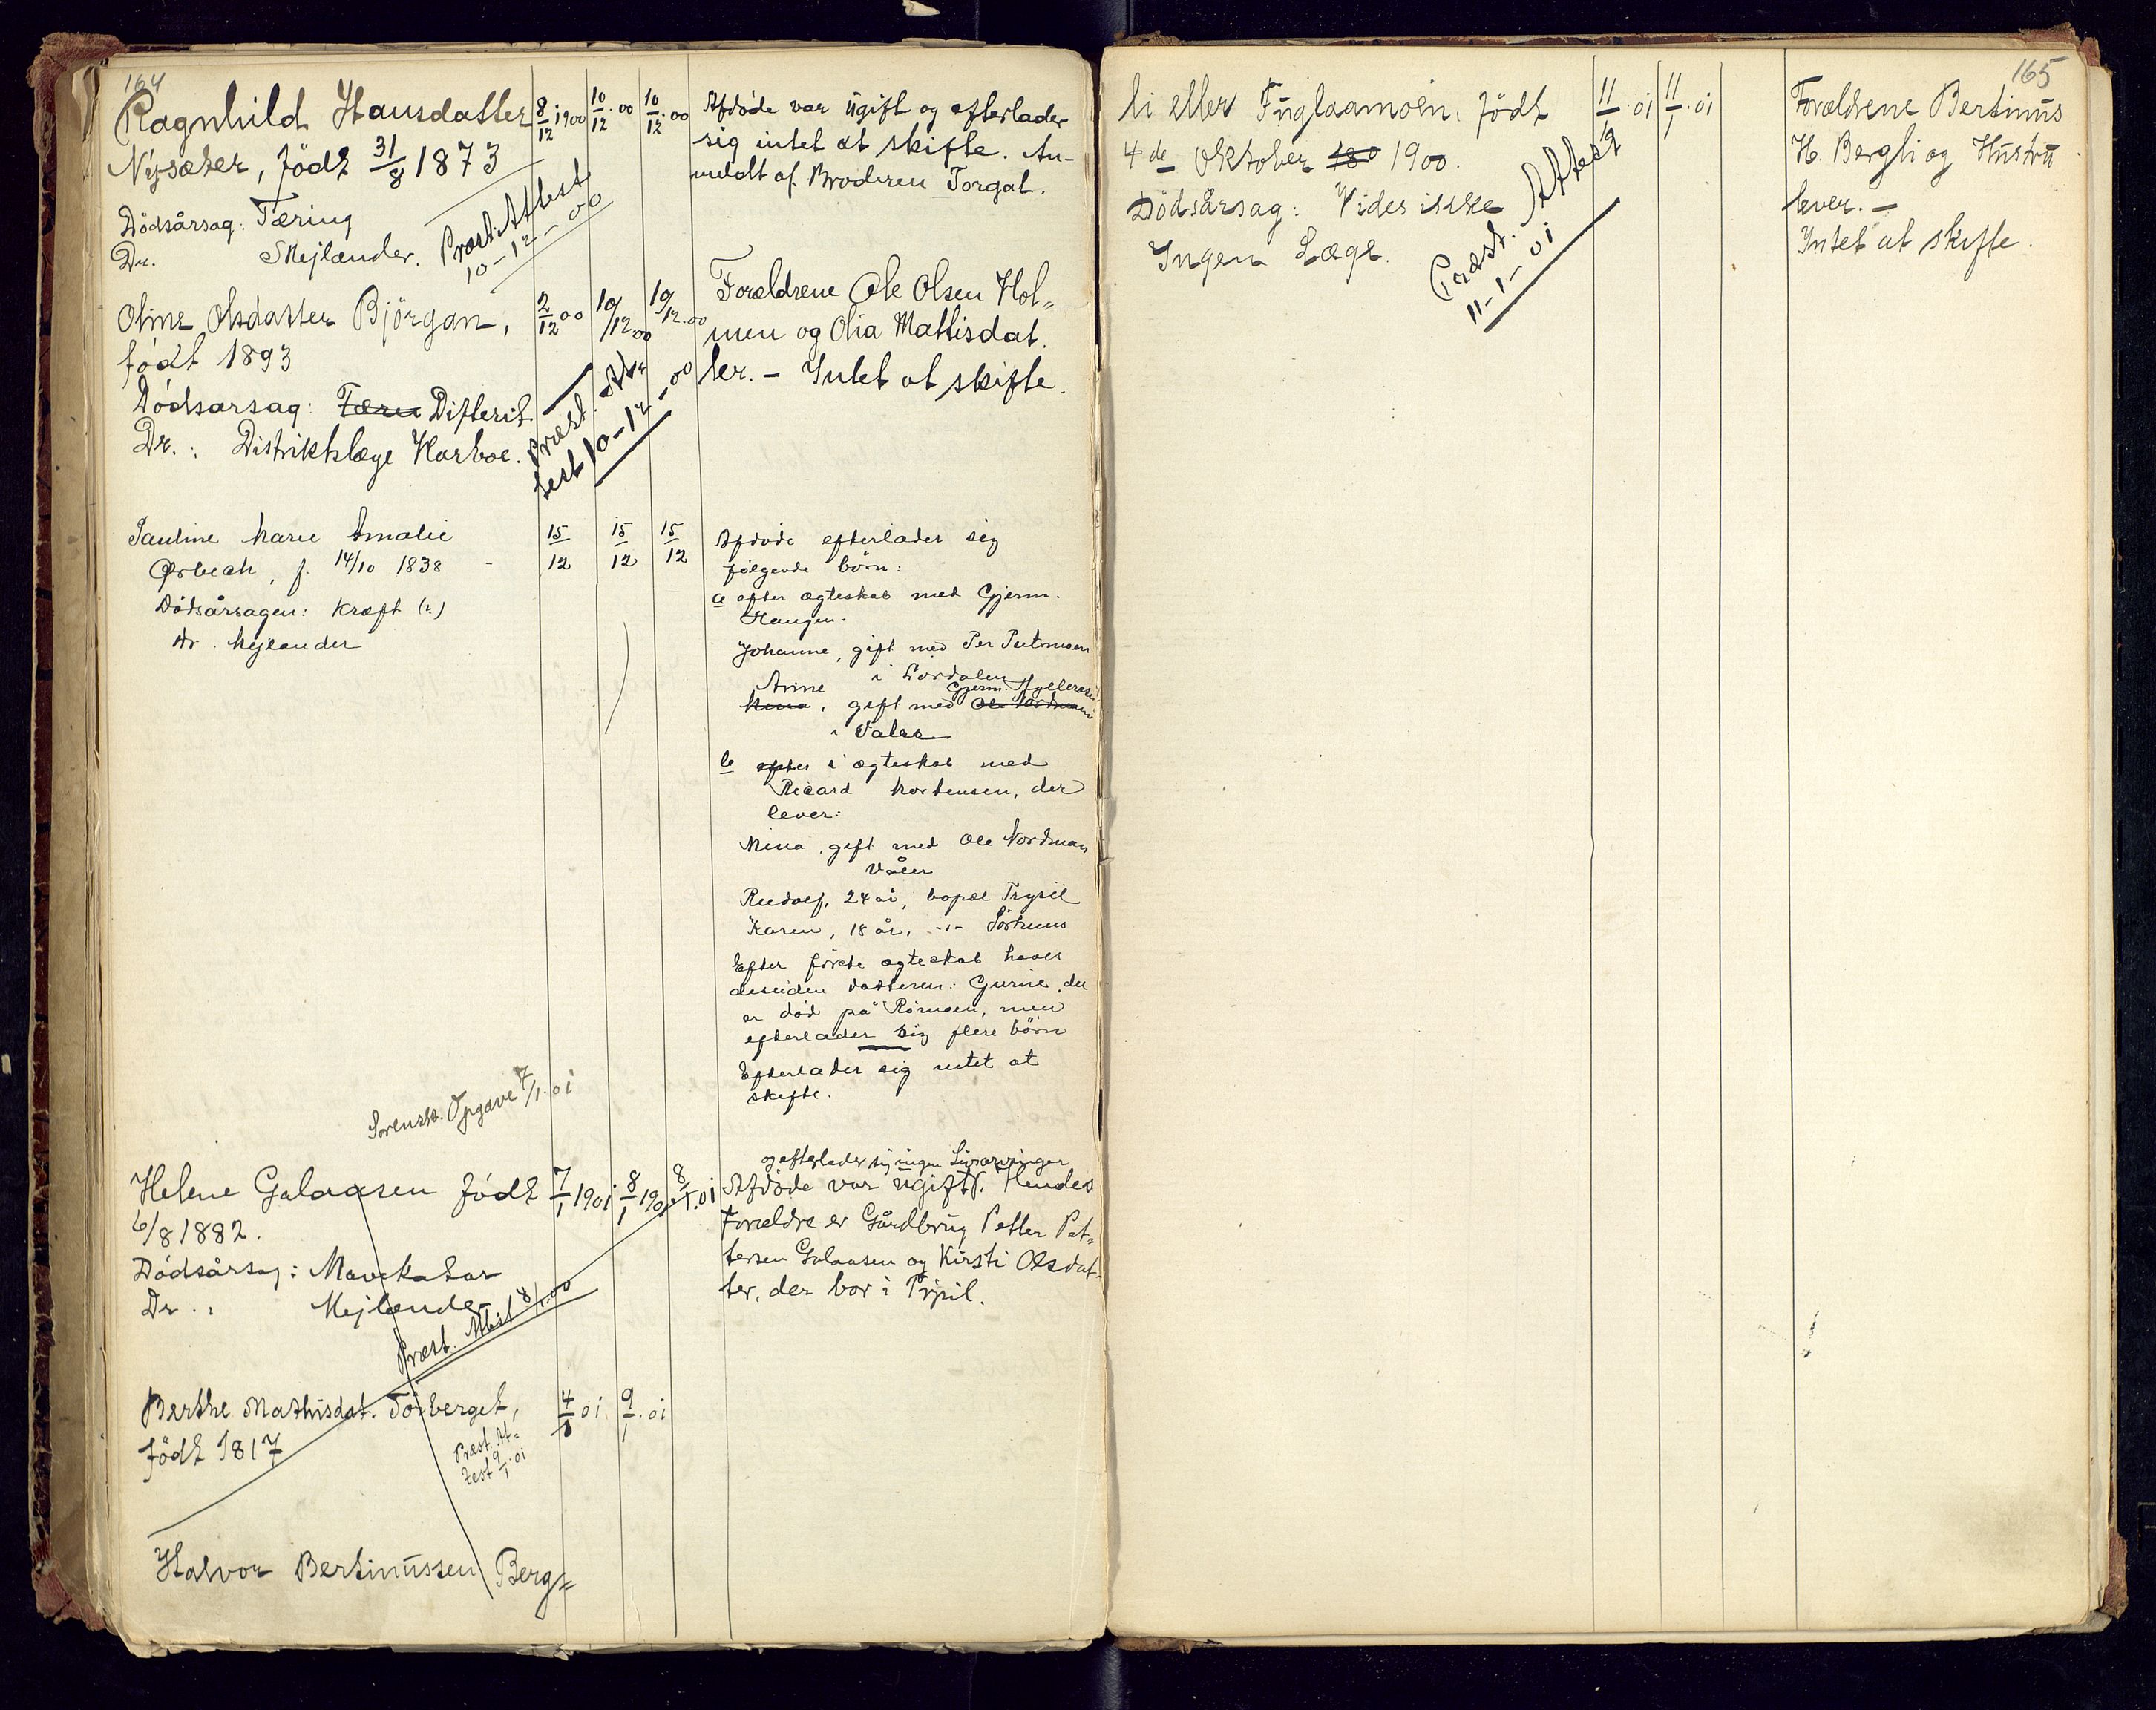 164
Ragnhild Hansdatter
Nysæter, født 31/8 1873
Dödsårsag: Tæring
Dr. Mejlænder.
Præst. Attest
10-12-00
8/12 1900
10/12.00
10/12.00
Afdøde var ugift og efterlader
sig intet at skifte. An-
meldt af Broderen Torgal.
Oline Olsdatter Björgan,
født 1893
Dódsarsag: Tæri Difterit
Dr.: Distriktslæge Harboe.
Præst. At-
test 10-12-00
2/12 00
10/12.00
10/12.00
Forældrene Ole Olsen Hol-
men og Olia Mathisdat.
ter. - Intet at skifte.
Pauline Marie Amalie
Ørbech, f. 14/10 1838
Dödsårsagen: Kræft
dr. Mejlænder
15/12
15/12
15/12
Afdöde efterlader sig
følgende börn:
a efter ægteskab med Gjerm.
Haugen.
Johanne, gift med Per
i Lördalen
Arine Gjerm.
Mina, gift med Ole Nordman
i Valer
b efter i ægteskab med
Ricard Mortensen, der
lever:
Mina, gift med Ole Nordman
Våler
Rudolf, 24 år, bopæl Trysil
Karen, 18 år, -"-
Efter förste ægteskab haves
desuden datteren: Gurine, der
er död på, men
efterlader sig flere börn
Efterlader sig intet at
skifte.
Sorensk. Opgave 7/1.01
Helene Galaasen født
6/8 1882.
Dödsårsag: Mavekatar
Dr.: Mejlænder
Præst. Attest 8/1.00
7/1 1901
8/1 1901
8/1.01
og efterlader sig ingen Livsarvinger
Afdöde var ugift. Hendes
Forældre er Gårdbrug Petter Pet-
tersen Galaasen og Kirsti Olsdat-
ter, der bor i Trysil.
Berthe Mathisdat. Torberget,
født 1817
Præst. At-
test 9/1.01
4/1 01
9/1.01
Halvor Bertinussen Berg-
165
li eller Fuglaamoen, født
4de Oktober 180 1900.
Dödsårsag: Vides ikke
Ingen Læge.
Præst. Attest
11-1-01
11/1.01
11/1.01
Forældrene Bertinus
H. Bergli og Hustru
lever. -
Intet at skifte.